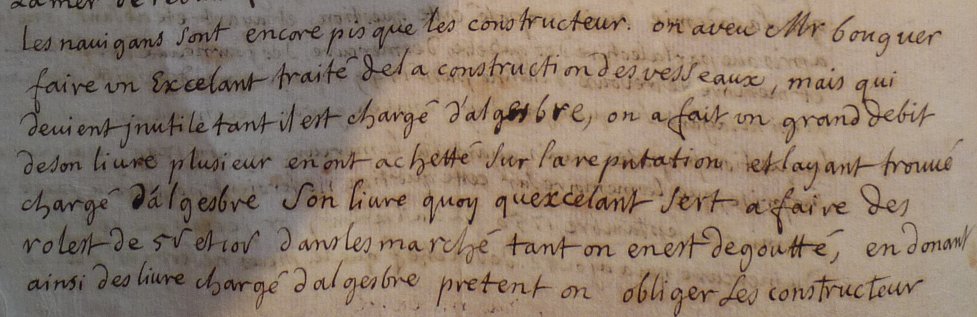 les navigans sont encore pis que les constructeur. on aveu Mr bouguer
faire vn Excelant traité dela construction des vesseaux, mais qui
devient jnutile tant il est chargé d'algesbre, on a fait vn grand debit
de son livre plusieur en ont achetté sur la reputation et layant trouvé
chargé d'algesbre son livre quoy quexcelant sert a faire des
rolest de et dans les marché tant on en est degoutté, en donant
ainsi des livre chargé d'algesbre pretent on obliger les constructeur